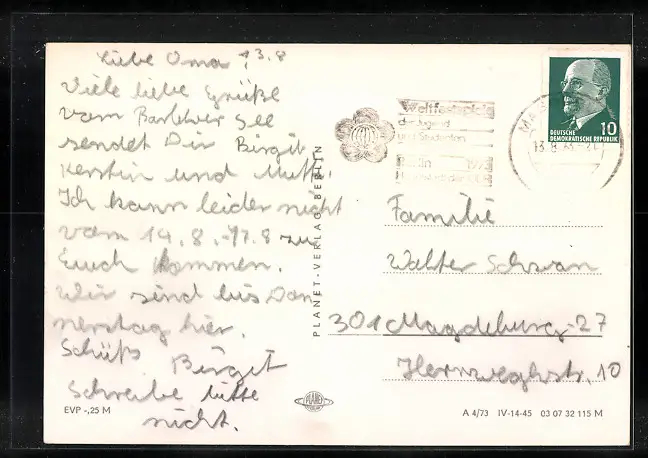 Liebe Oma, 13.8
Viele liebe Grüße
vom Barleber See
sendet Dir Birgit
Kerstin und Mutti.
Ich kann leider nicht
vom 14.8.-17.8 zu
Euch kommen.
Wir sind bis Don
nerstag hier.
Schüß Birgit
Schreibe bitte
nicht.
EVP -,25 M
PLANET-VERLAG BERLIN
PLANET
Weltfestspiele
der Jugend
und Studenten
Berlin 1973
DEUTSCHE
DEMOKRATISCHE REPUBLIK
10
13.8.73
Familie
Walter Schwan
301 Magdeburg-27
Herweghstr. 10
A 4/73 IV-14-45 03 07 32 115 M